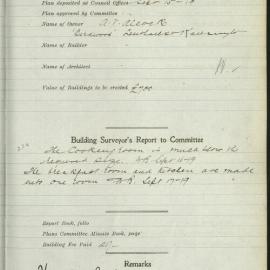 Plan deposited at Council Offices Sept 15-19
Plan approved by Committee
Name of Owner A. T. Alcock
Name of Builder
Name of Architect
Value of Buildings to be erected £
Building Surveyor's Report to Committee
The Cooking room is much below the
required size. Sept 16-19
The breakfast room and kitchen are made
into one room Sept 17-19
Report Book, folio
Plans Committee Minute Book, page
Building Fee Paid
Remarks